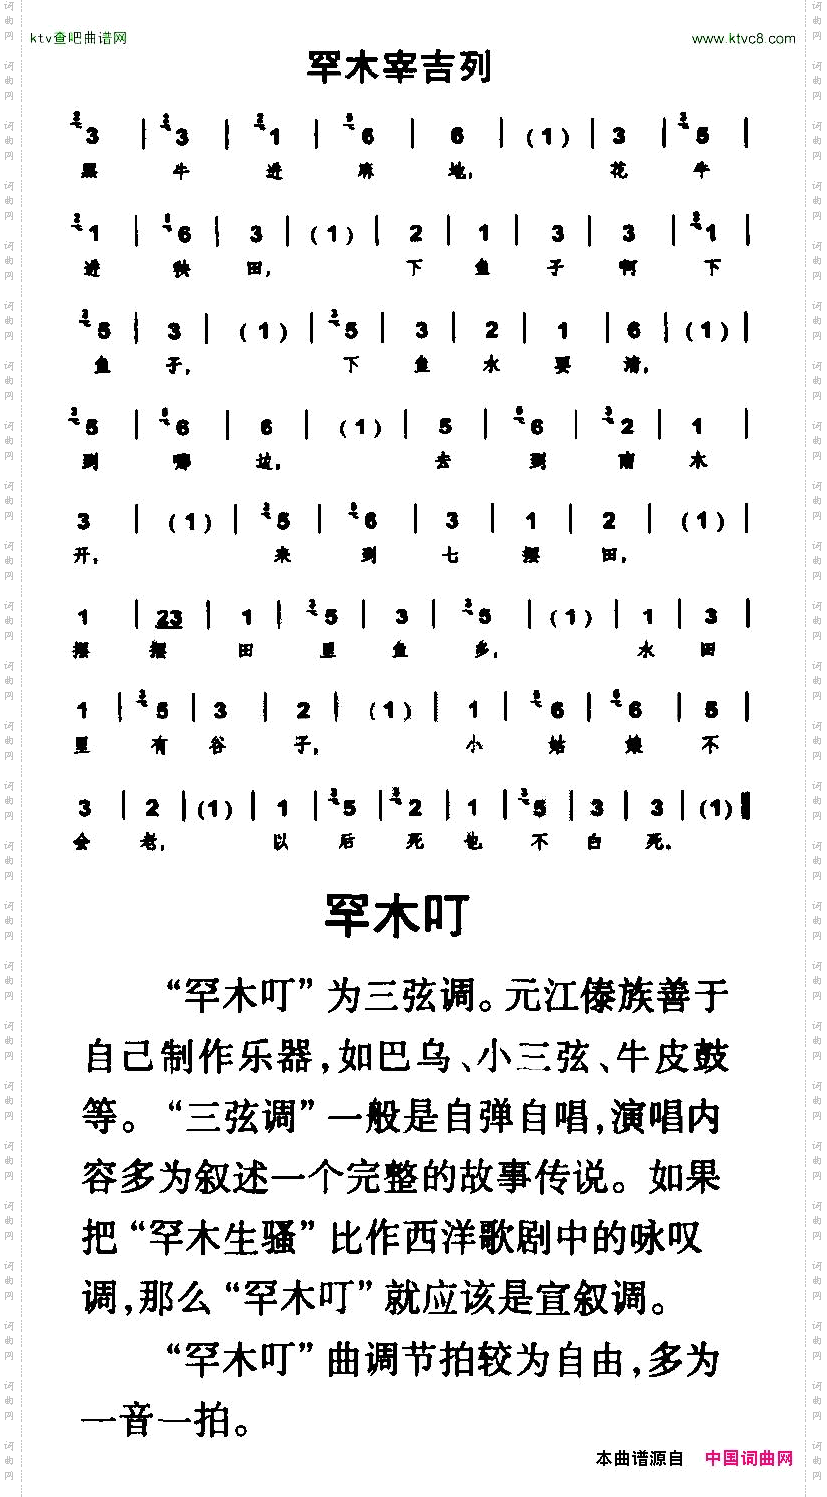 ktv查吧曲谱网 www.ktvc8.com
罕木宰吉列
3 | 3 | 1 | 6 | 6 | (1) | 3 | 5 |
黑 牛 进 麻 地, 花 牛
1 | 6 | 3 | (1) | 2 | 1 | 3 | 3 | 1 |
进 秧 田, 下 鱼 子 啊 下
5 | 3 | (1) | 5 | 3 | 2 | 1 | 6 | (1) |
鱼 子, 下 鱼 水 要 清,
5 | 6 | 6 | (1) | 5 | 6 | 2 | 1 |
到 哪 边, 去 到 南 木
3 | (1) | 5 | 6 | 3 | 1 | 2 | (1) |
开, 来 到 七 摆 田,
1 | 23 | 1 | 5 | 3 | 5 | (1) | 1 | 3 |
摆 摆 田 里 鱼 多, 水 田
1 | 5 | 3 | 2 | (1) | 1 | 6 | 6 | 5 |
里 有 谷 子, 小 姑 娘 不
3 | 2 | (1) | 1 | 5 | 2 | 1 | 5 | 3 | 3 | (1) ‖
会 老, 以 后 死 也 不 白 死。
罕木叮
“罕木叮”为三弦调。元江傣族善于
自己制作乐器,如巴乌、小三弦、牛皮鼓
等。“三弦调”一般是自弹自唱,演唱内
容多为叙述一个完整的故事传说。如果
把“罕木生骚”比作西洋歌剧中的咏叹
调,那么“罕木叮”就应该是宣叙调。
“罕木叮”曲调节拍较为自由,多为
一音一拍。
本曲谱源自 中国词曲网